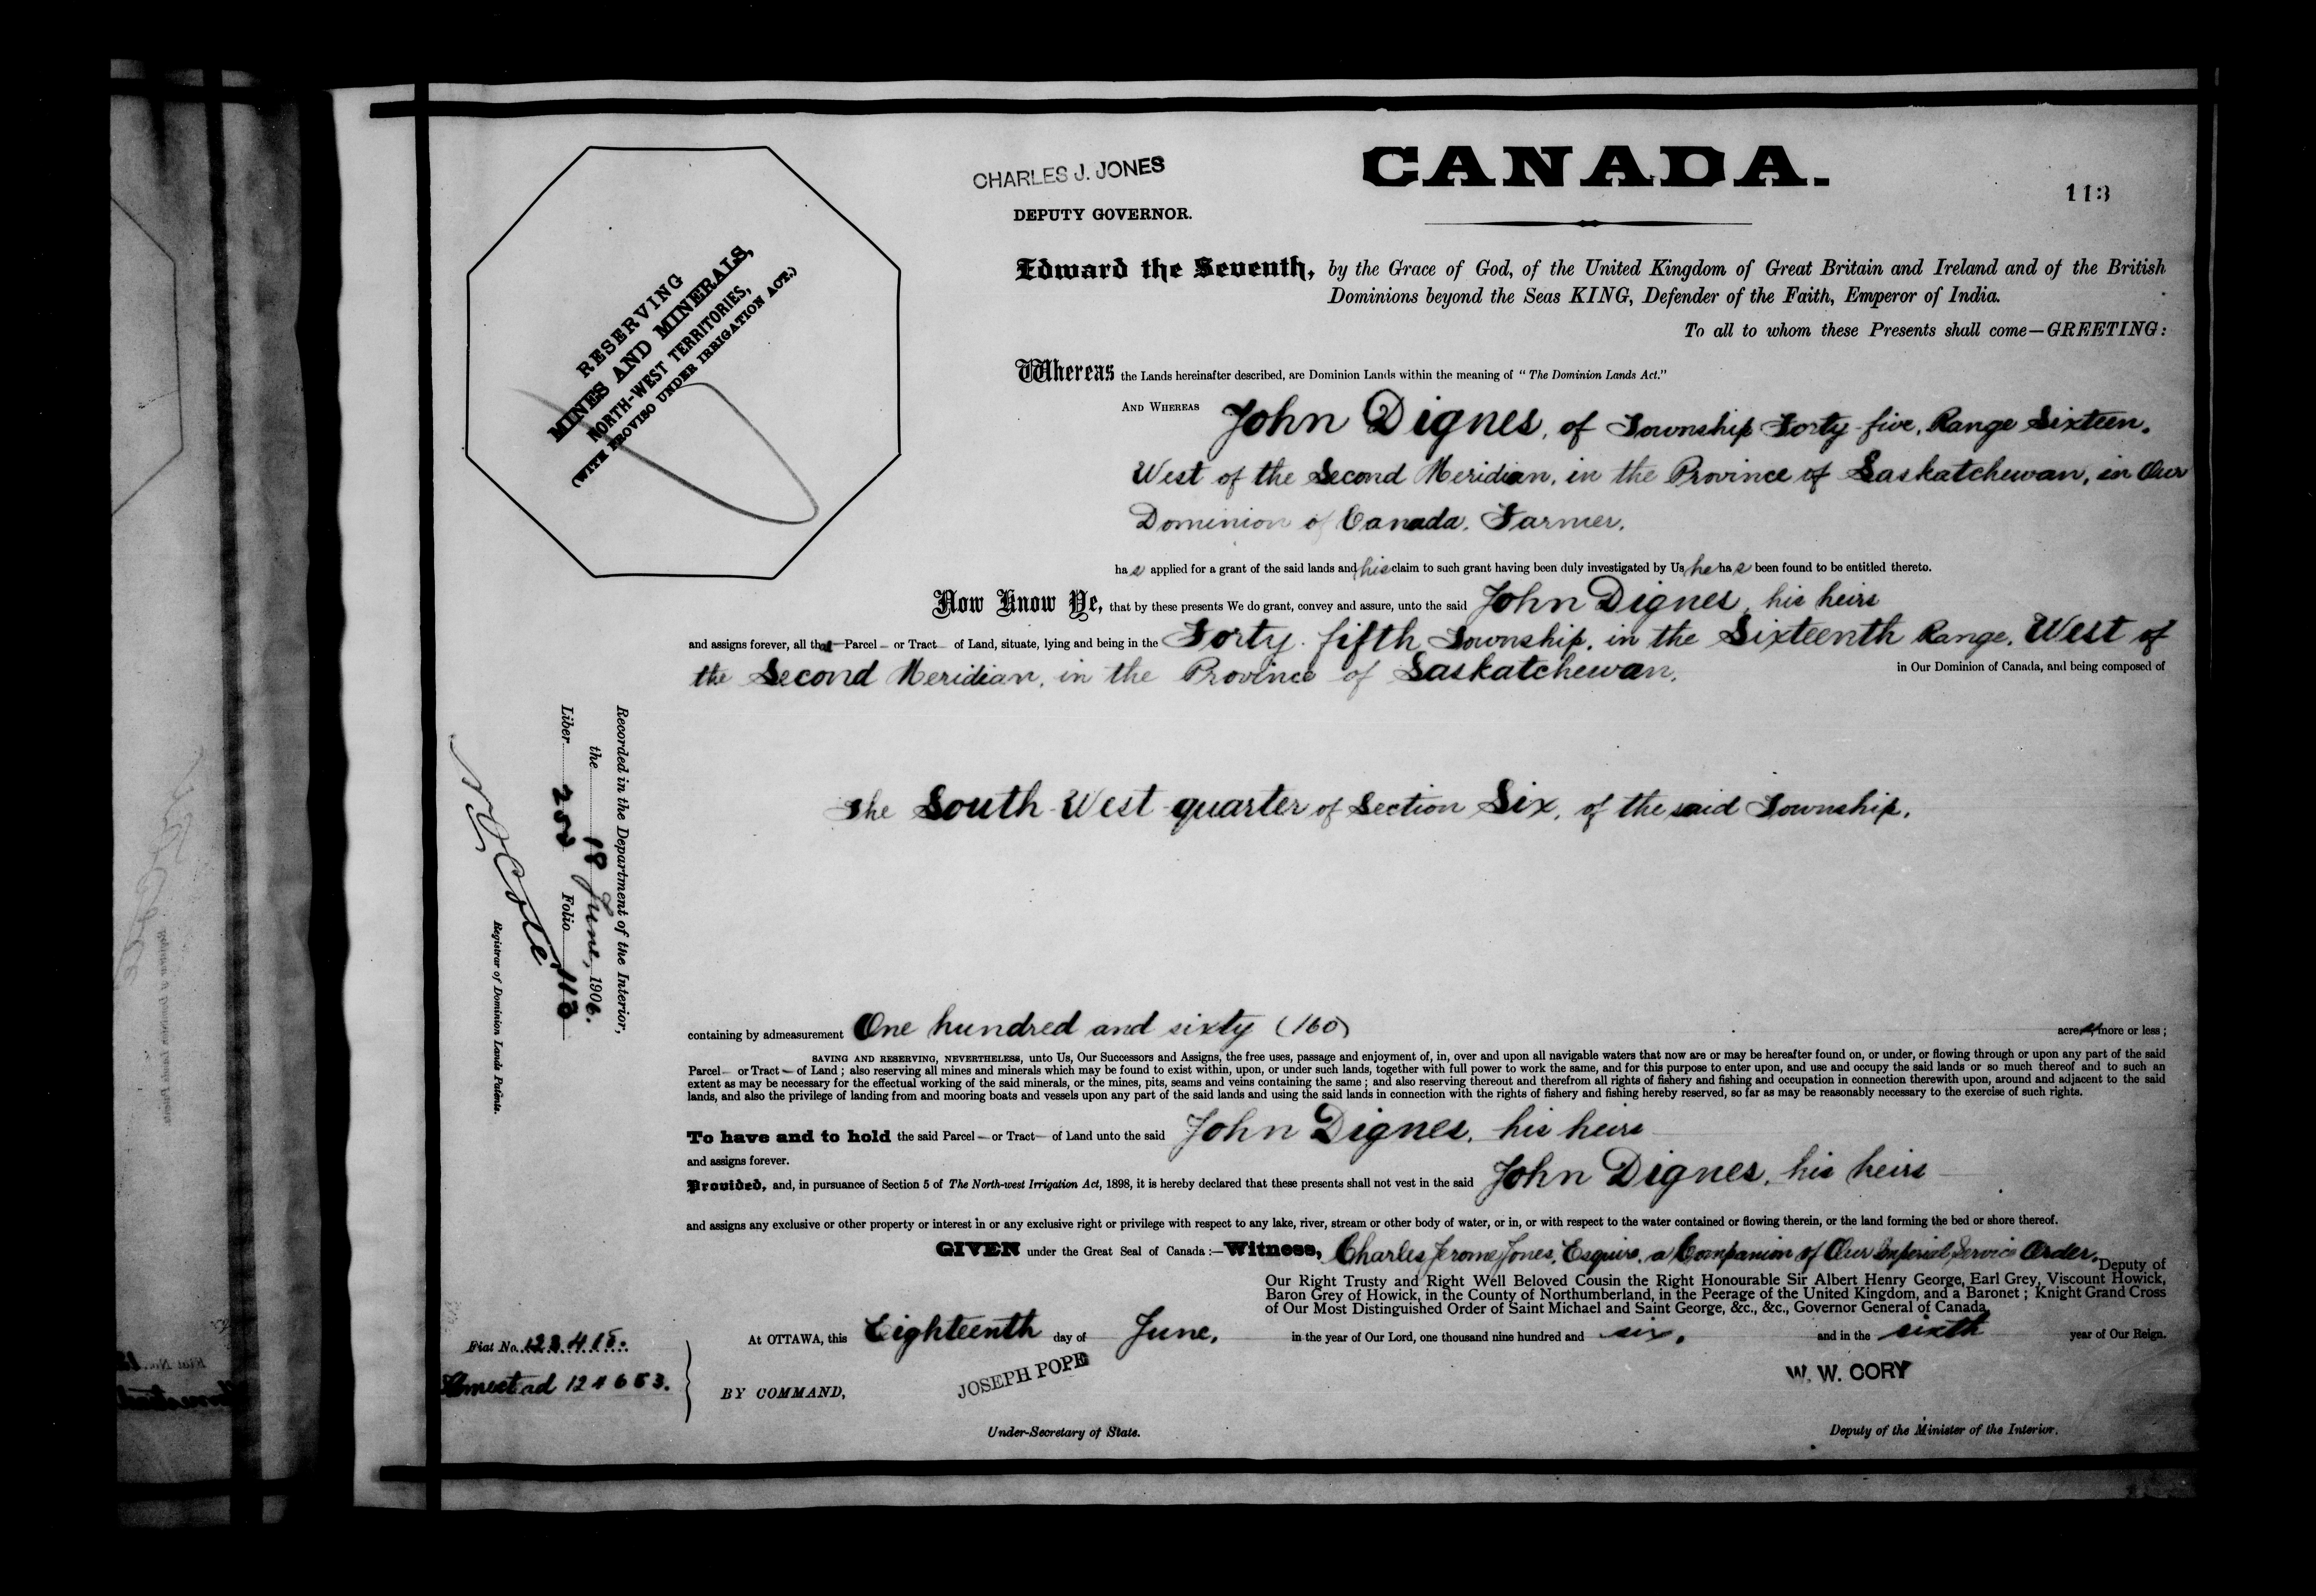 CHARLES J. JONES
DEPUTY GOVERNOR.
CANADA.
113
RESERVING
MINES AND MINERALS,
NORTH-WEST TERRITORIES,
(WITH PROVISO UNDER IRRIGATION ACT.)
Edward the Seventh, by the Grace of God, of the United Kingdom of Great Britain and Ireland and of the British
Dominions beyond the Seas KING, Defender of the Faith, Emperor of India.
To all to whom these Presents shall come—GREETING:
Whereas the Lands hereinafter described, are Dominion Lands within the meaning of "The Dominion Lands Act."
AND WHEREAS John Dignes, of Township Forty-five, Range Sixteen,
West of the Second Meridian, in the Province of Saskatchewan, in Our
Dominion of Canada, Farmer,
has applied for a grant of the said lands and his claim to such grant having been duly investigated by Us he has been found to be entitled thereto.
Now Know Ye, that by these presents We do grant, convey and assure, unto the said John Dignes, his heirs
and assigns forever, all that Parcel or Tract of Land, situate, lying and being in the Forty-fifth Township, in the Sixteenth Range, West of
the Second Meridian, in the Province of Saskatchewan, in Our Dominion of Canada, and being composed of
The South-West quarter of Section Six, of the said Township,
Recorded in the Department of the Interior,
the 18 June, 1906.
Liber 252 Folio 113
Registrar of Dominion Lands Patents.
containing by admeasurement One hundred and sixty (160) acres more or less;
SAVING AND RESERVING, NEVERTHELESS, unto Us, Our Successors and Assigns, the free uses, passage and enjoyment of, in, over and upon all navigable waters that now are or may be hereafter found on, or under, or flowing through or upon any part of the said
Parcel or Tract of Land; also reserving all mines and minerals which may be found to exist within, upon, or under such lands, together with full power to work the same, and for this purpose to enter upon, and use and occupy the said lands or so much thereof and to such an
extent as may be necessary for the effectual working of the said minerals, or the mines, pits, seams and veins containing the same; and also reserving thereout and therefrom all rights of fishery and fishing and occupation in connection therewith upon, around and adjacent to the said
lands, and also the privilege of landing from and mooring boats and vessels upon any part of the said lands and using the said lands in connection with the rights of fishery and fishing hereby reserved, so far as may be reasonably necessary to the exercise of such rights.
To have and to hold the said Parcel or Tract of Land unto the said John Dignes, his heirs
and assigns forever.
Provided, and, in pursuance of Section 5 of The North-west Irrigation Act, 1898, it is hereby declared that these presents shall not vest in the said John Dignes, his heirs
and assigns any exclusive or other property or interest in or any exclusive right or privilege with respect to any lake, river, stream or other body of water, or in, or with respect to the water contained or flowing therein, or the land forming the bed or shore thereof.
GIVEN under the Great Seal of Canada:—Witness, Charles Jerome Jones, Esquire, a Companion of Our Imperial Service Order, Deputy of
Our Right Trusty and Right Well Beloved Cousin the Right Honourable Sir Albert Henry George, Earl Grey, Viscount Howick,
Baron Grey of Howick, in the County of Northumberland, in the Peerage of the United Kingdom, and a Baronet; Knight Grand Cross
of Our Most Distinguished Order of Saint Michael and Saint George, &c., &c., Governor General of Canada
At OTTAWA, this Eighteenth day of June, in the year of Our Lord, one thousand nine hundred and six, and in the sixth year of Our Reign.
Fiat No. 123415.
Homestead 124653.
BY COMMAND,
JOSEPH POPE
Under-Secretary of State.
W. W. CORY
Deputy of the Minister of the Interior.